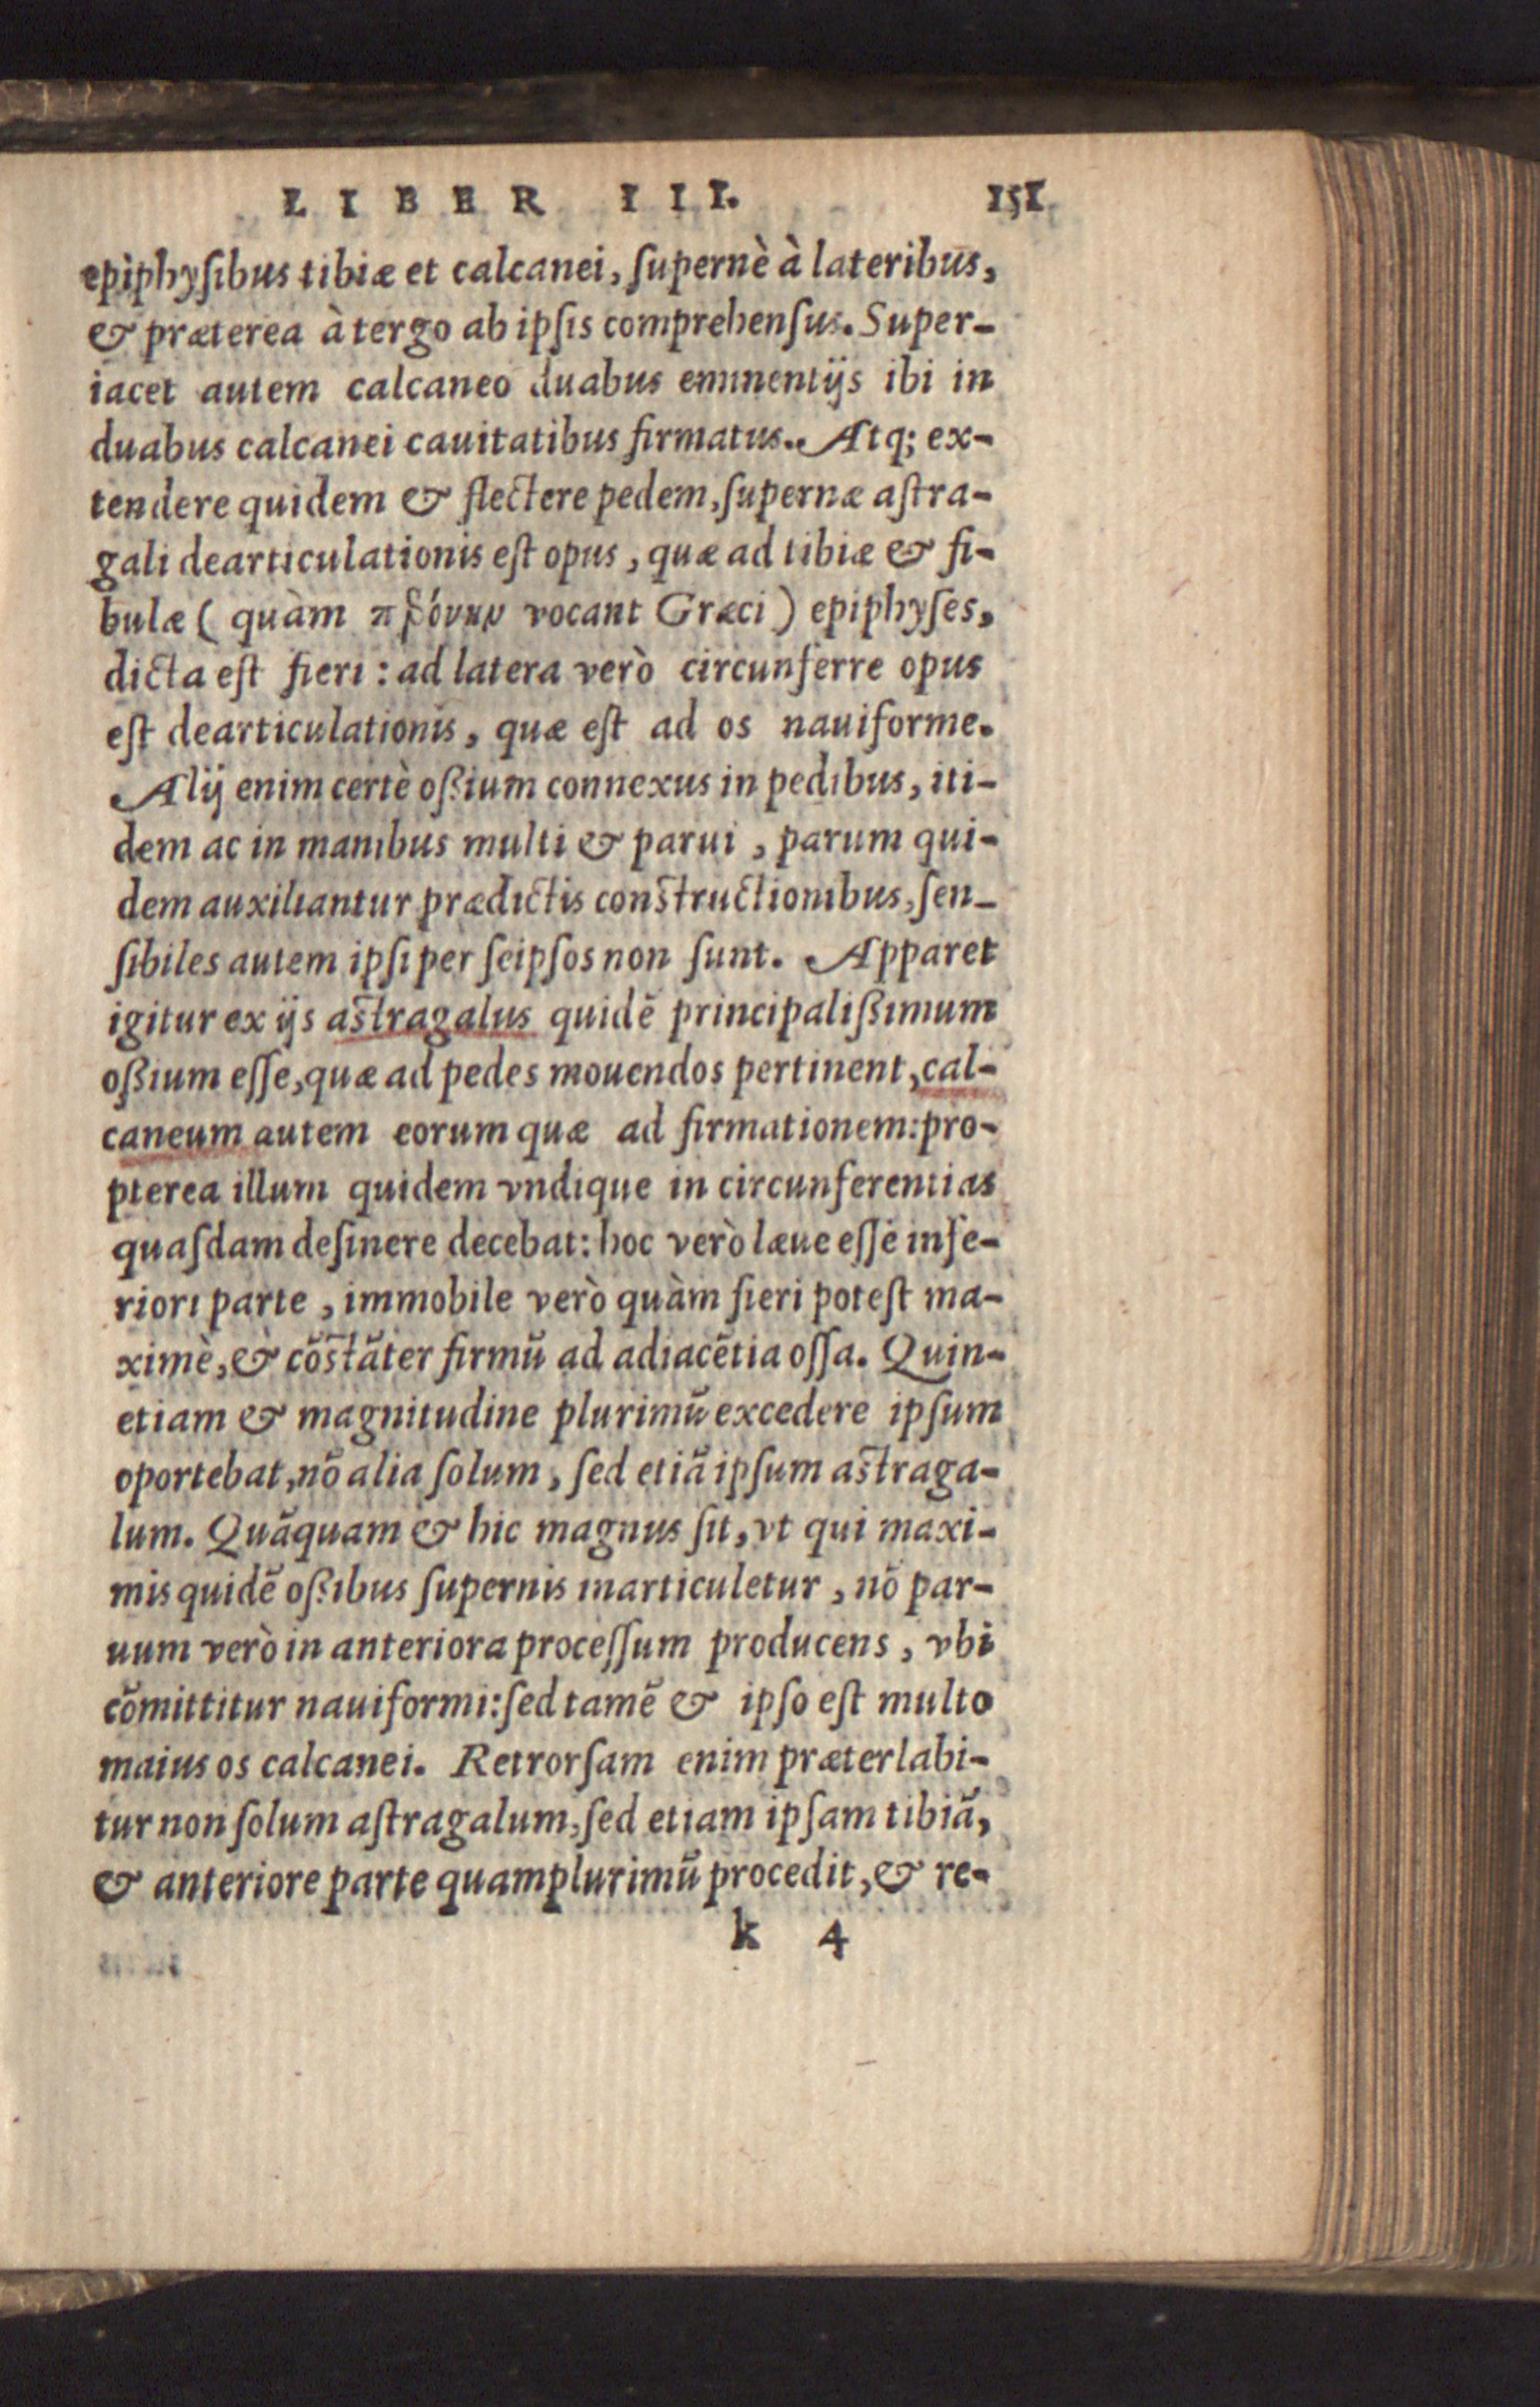 LIBER III. 151
epiphyſibus tibiæ et calcanei, ſupernè à lateribus,
& præterea à tergo ab ipſis comprehenſus. Super-
iacet autem calcaneo duabus eminentijs ibi in
duabus calcanei cauitatibus firmatus. Atq; ex-
tendere quidem & flectere pedem, ſupernæ aſtra-
gali dearticulationis eſt opus, quæ ad tibiæ & fi-
bulæ ( quàm περόνην vocant Græci ) epiphyſes,
dicta eſt fieri : ad latera verò circunferre opus
eſt dearticulationis, quæ eſt ad os nauiforme.
Alij enim certè oßium connexus in pedibus, iti-
dem ac in manibus multi & parui , parum qui-
dem auxiliantur prædictis constructionibus, ſen-
ſibiles autem ipſi per ſeipſos non ſunt. Apparet
igitur ex ijs astragalus quidē principalißimum
oßium eſſe, quæ ad pedes mouendos pertinent, cal-
caneum autem eorum quæ ad firmationem: pro-
pterea illum quidem vndique in circunferentias
quaſdam deſinere decebat: hoc verò læue eſſe infe-
riori parte , immobile verò quàm fieri poteſt ma-
ximè, & cōstāter firmū ad adiacētia oſſa. Quin-
etiam & magnitudine plurimū excedere ipſum
oportebat, nō alia ſolum, ſed etiā ipſum astraga-
lum. Quāquam & hic magnus ſit, vt qui maxi-
mis quidē oßibus ſupernis inarticuletur , nō par-
uum verò in anteriora proceſſum producens , vbi
cōmittitur nauiformi: ſed tamē & ipſo eſt multo
maius os calcanei. Retrorſam enim præterlabi-
tur non ſolum aſtragalum, ſed etiam ipſam tibiā,
& anteriore parte quamplurimū procedit, & re-
k 4